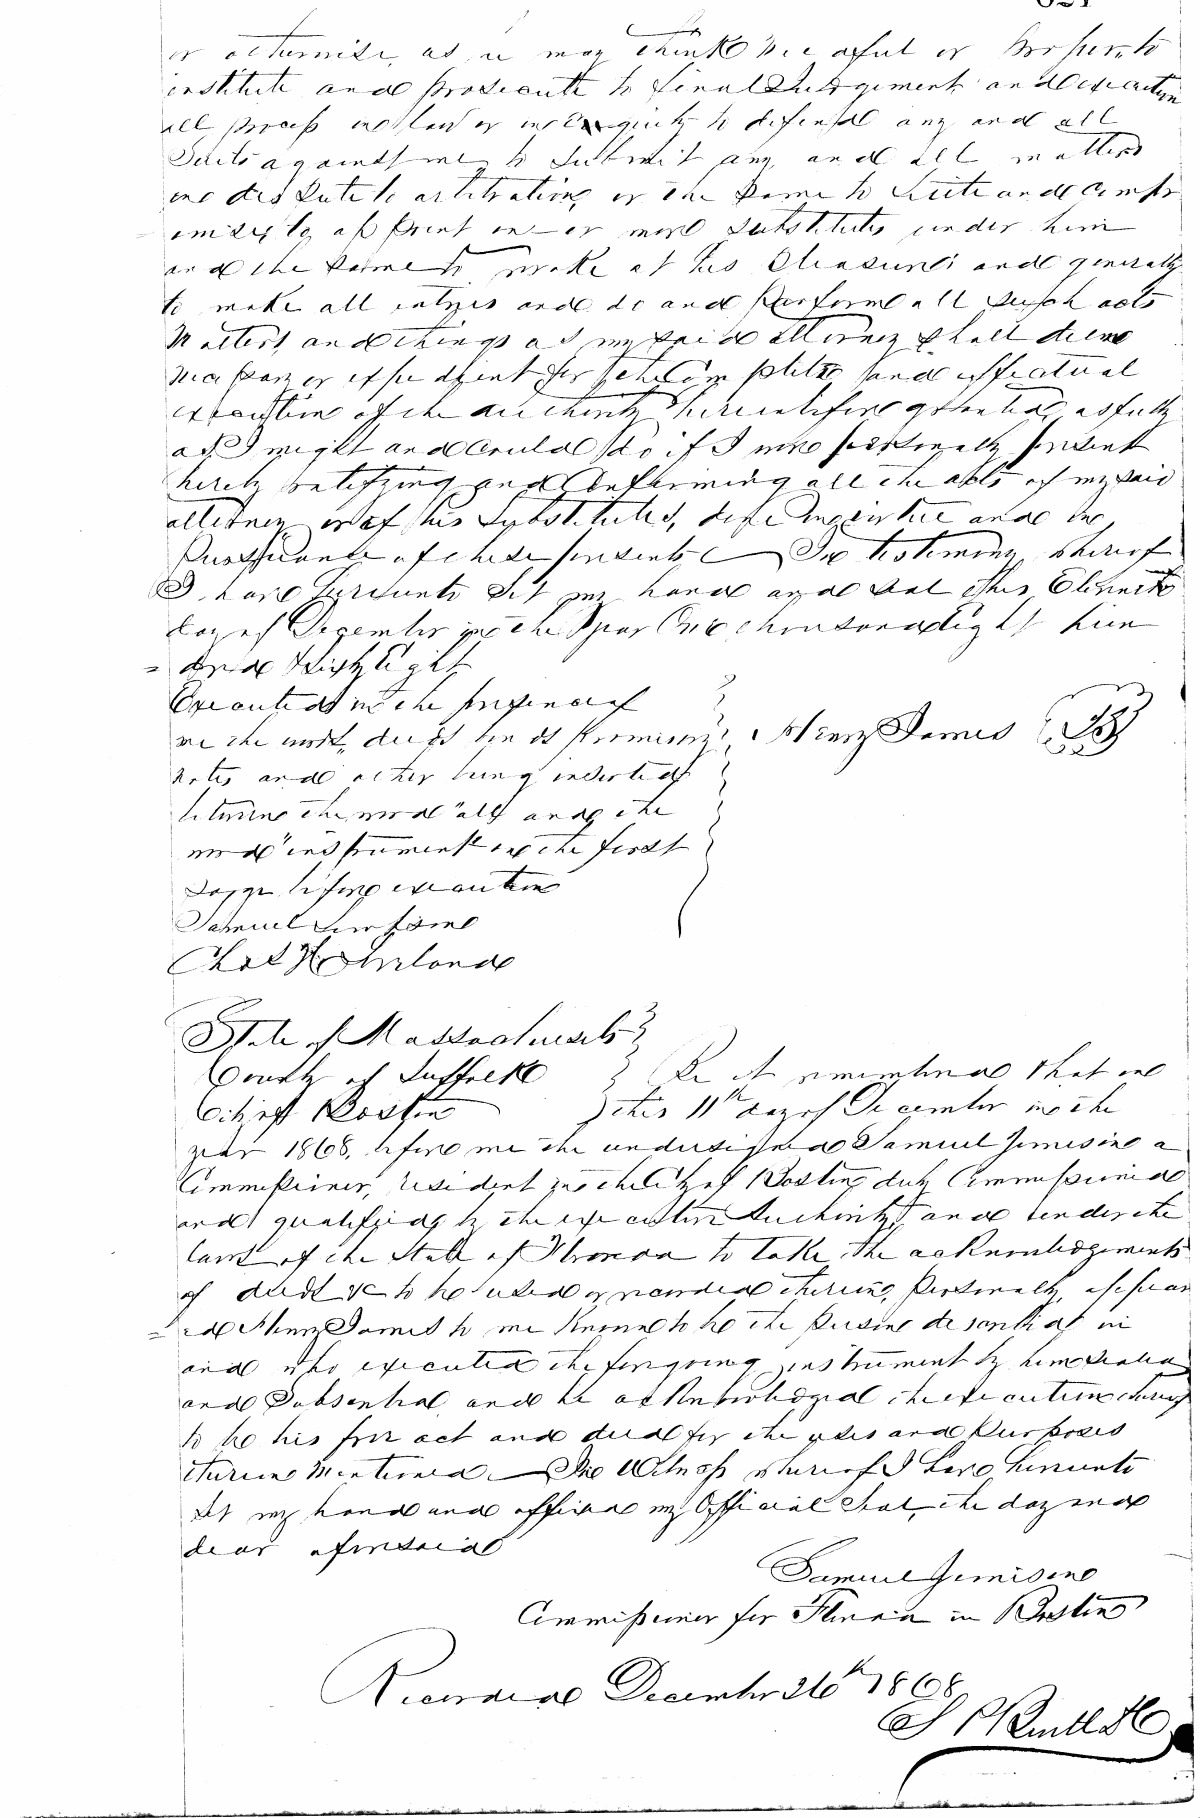 or otherwise, as he may think needful or proper, to
institute and prosecute to final Judgement and execution
all process in law or in Equity to defend any and all
Suits against me, to Submit any and all matters
in dispute to arbitration, or the same to Suite and compr
omise, to appoint one or more substitutes under him
and the same to revoke at his Pleasure; and generally
to make all entries and do and perform all such acts
Matters, and things as my said attorney shall deem
necessary or expedient for the complete and effectual
execution of the authority hereinbefore granted, as fully
as I might and could do if I were personally present
hereby ratifying and confirming all the acts of my said
attorney or of his Substitutes, done in virtue and in
Pursuance of these presents In testimony whereof
I have hereunto Set my hand and Seal this Eleventh
day of December in the Year One thousand Eight hun
dred Sixty Eight
Executed in the presence of
me the words, deeds bonds Promissory Henry James
notes and other being inserted
between the word "all" and the
word "instrument" on the first
page before execution
Samuel Jennison
Chas H
State of Massachusetts
County of Suffolk Be it remembered that on
City of Boston this 11th day of December in the
year 1868, before me the undersigned Samuel Jennison a
Commissioner, resident in the City of Boston duly Commissioned
and qualified by the executive Authority, and under the
laws of the State of Florida to take the acknowledgements
of deeds &c to be used or recorded therein, Personally, appear
ed Henry James to me Known to be the Person described in
and who executed the foregoing instrument by him sealed
and Subscribed and he acknowledged the execution thereof
to be his free act and deed for the uses and Purposes
therein Mentioned In Witness whereof I have hereunto
Set my hand and affixed my Official Seal, the day and
year aforesaid
Samuel Jennison
Commissioner for Florida in Boston
Recorded December 26th 1868